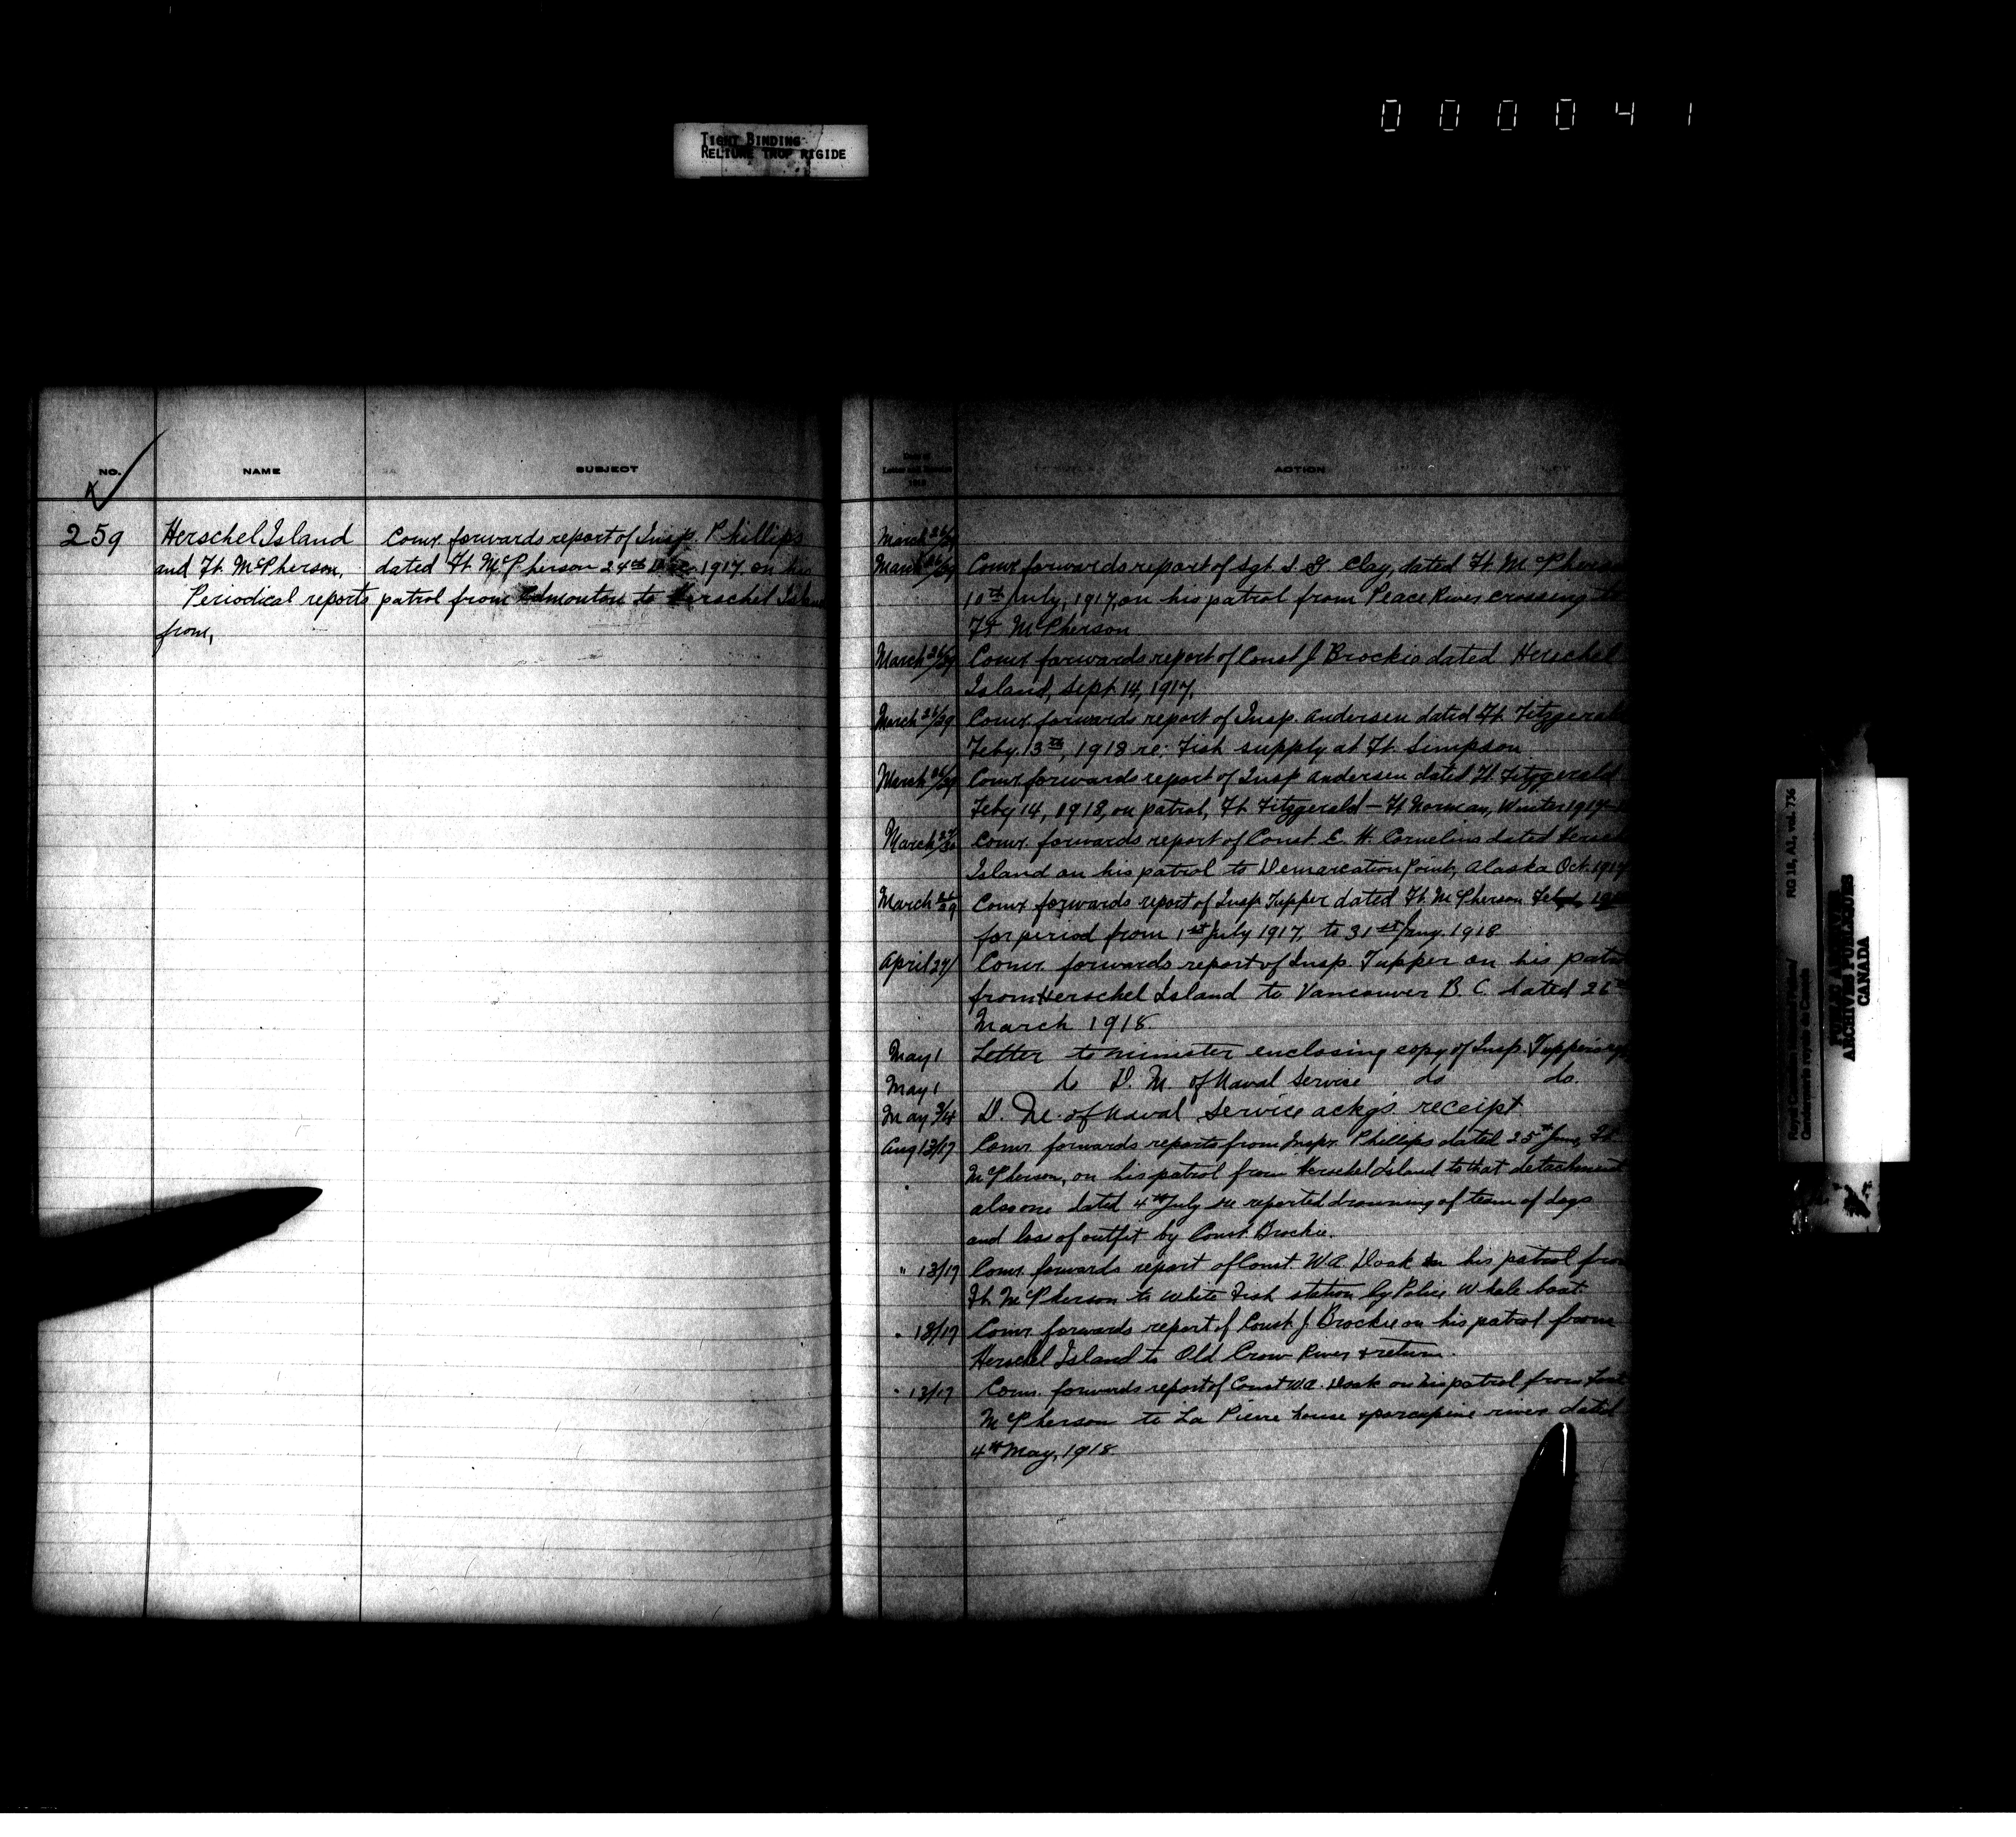 000041
TIGHT BINDING
RELIURE TROP RIGIDE
NO.
NAME
SUBJECT
259
Herschel Island
and Ft. McPherson.
Periodical reports
from,
Comr. forwards report of Insp. Phillips
dated Ft. McPherson 24th 1917. on his
patrol from Edmonton to Herschel Island
Date of
Letter and
1918
ACTION
March 26/29
March 26/29 Comr forwards report of Sgt. S. G. Clay, dated Ft. McPherson
10th July, 1917, on his patrol from Peace River crossing to
Ft McPherson
March 26/29 Comr forwards report of Const J. Brockie dated Herschel
Island, Sept 14, 1917.
March 26/29 Comr forwards report of Insp. Andersen dated Ft. Fitzgerald
Feby. 13th, 1918 re: Fish supply at Ft. Simpson
March 26/29 Comr forwards report of Insp Andersen dated Ft. Fitzgerald
Feby 14, 1918, on patrol, Ft. Fitzgerald – Ft Norman, Winter 1917
March 27/30 Comr. forwards report of Const. E. H. Cornelius dated Herschel
Island on his patrol to Demarcation Point, Alaska Oct. 1917
March 26/29 Comr forwards report of Insp Tupper dated Ft. McPherson
for period from 1st July 1917, to 31st Jany. 1918
April 27/ Comr. forwards report of Insp. Tupper on his patrol
from Herschel Island to Vancouver B. C. dated 26th
March 1918.
May 1 Letter to minister enclosing copy of Insp. Tupper's
May 1 to D. M. of Naval Service do do.
May 3/4 D. M. of Naval Service ackg's receipt
Aug 13/17 Comr. forwards reports from Inspr. Phillips dated 25th June, Ft.
McPherson, on his patrol from Herschel Island to that detachment
also one dated 4th July re reported drowning of team of dogs
and loss of outfit by Const. Brockie.
" 13/17 Comr. forwards report of Const. W.A. Doak on his patrol from
Ft. McPherson to White Fish station by Police Whale boat
" 13/17 Comr. forwards report of Const J. Brockie on his patrol from
Herschel Island to Old Crow River & return.
" 13/17 Comr. forwards report of Const W.A. Doak on his patrol from Fort
McPherson to La Pierre house & porcupine river dated
4th May, 1918.
RG 18, A1, vol. 736
Royal Canadian Mounted Police/
Gendarmerie royale du Canada
PUBLIC ARCHIVES
ARCHIVES PUBLIQUES
CANADA